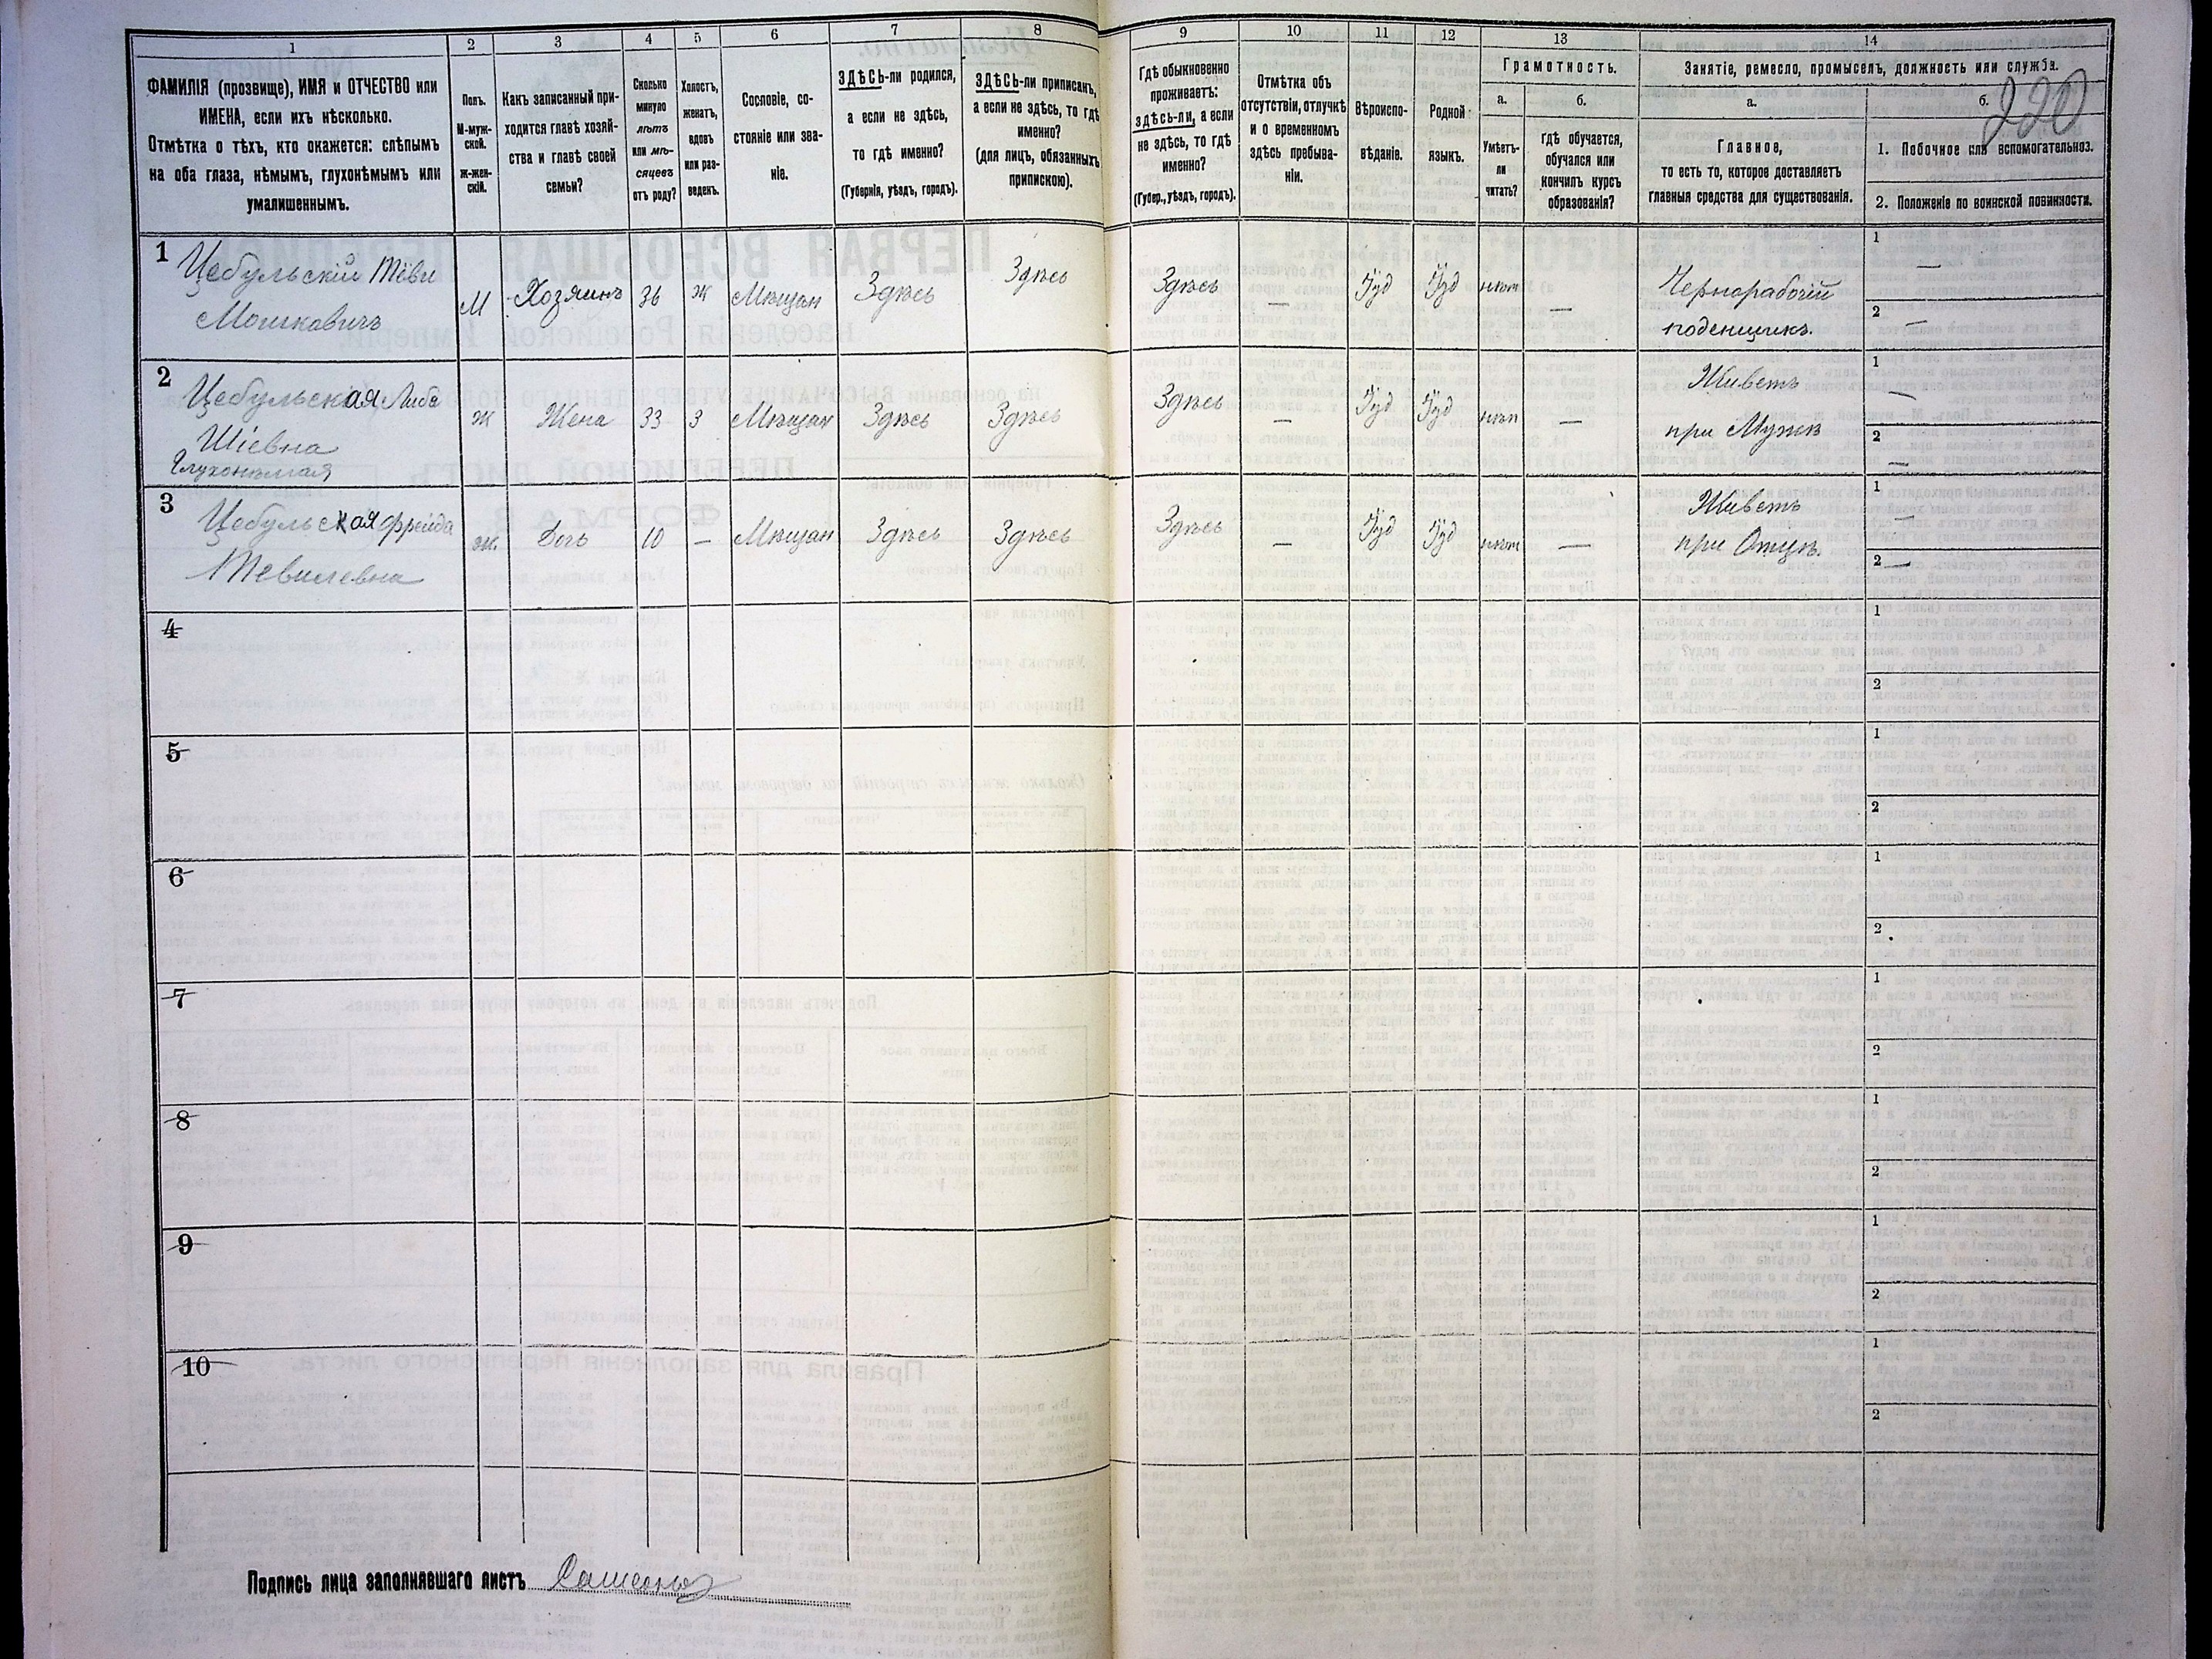 1 2 3 4 5 6 7 8 9 10 11 12 13 14
ФАМИЛІЯ (прозвище), ИМЯ и ОТЧЕСТВО или
ИМЕНА, если ихъ нѣсколько.
Отмѣтка о тѣхъ, кто окажется: слѣпымъ
на оба глаза, нѣмымъ, глухонѣмымъ или
умалишеннымъ.
Полъ.
М-муж-
ской.
Ж-жен-
скій.
Какъ записанный при-
ходится главѣ хозяй-
ства и главѣ своей
семьи?
Сколько
минуло
лѣтъ
или мѣ-
сяцевъ
отъ роду?
Холостъ,
женатъ,
вдовъ
или раз-
веденъ.
Сословіе, со-
стояніе или зва-
ніе.
ЗДѢСЬ-ли родился,
а если не здѣсь,
то гдѣ именно?
(Губернія, уѣздъ, городъ).
ЗДѢСЬ-ли приписанъ,
а если не здѣсь, то гдѣ
именно?
(для лицъ, обязанныхъ
припискою).
Гдѣ обыкновенно
проживаетъ:
здѣсь-ли, а если
не здѣсь, то гдѣ
именно?
(Губер., уѣздъ, городъ).
Отмѣтка объ
отсутствіи, отлучкѣ
и о временномъ
здѣсь пребыва-
ніи.
Вѣроиспо-
вѣданіе.
Родной
языкъ.
Грамотность.
а. б.
Умѣетъ-
ли
читать?
Гдѣ обучается,
обучался или
кончилъ курсъ
образованія?
Занятіе, ремесло, промыселъ, должность или служба.
а. б.
220
Главное,
то есть то, которое доставляетъ
главныя средства для существованія.
1. Побочное или вспомогательноз.
2. Положеніе по воинской повинности.
1 Цебульскій Тёви
Мошковичъ
М Хозяинъ 36 Ж Мѣщан Здѣсь Здѣсь Здѣсь — Іуд Іуд нѣт —
Чернорабочій
поденщикъ.
1 —
2 —
2 Цебульская Либа
Шіевна
Глухонѣмая
Ж Жена 33 З Мѣщан Здѣсь Здѣсь Здѣсь — Іуд Іуд нѣт —
Живетъ
при Мужѣ
1 —
2 —
3 Цебульская Фрейда
Тевилевна
Ж. Дочь 10 — Мѣщан Здѣсь Здѣсь Здѣсь — Іуд Іуд нѣт —
Живетъ
при Отцѣ.
1 —
2 —
4
1
2
5
1
2
6
1
2
7
1
2
8
1
2
9
1
2
10
1
2
Подпись лица заполнявшаго листъ